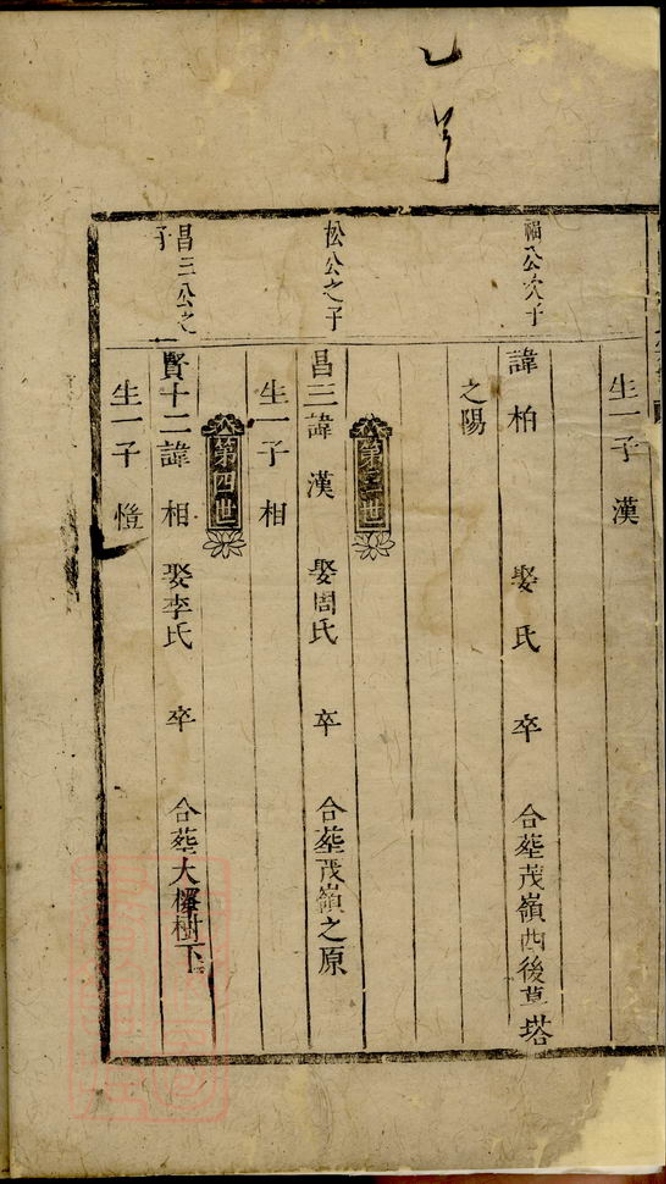 生一子 漢
福公次子
諱柏 娶氏 卒 合塟茂嶺西後草塔
之陽
第三世
松公之子
昌三諱漢 娶周氏 卒 合塟茂嶺之原
生一子 相
第四世
昌三公之
子
賢十二諱相 娶李氏 卒 合塟大樹下
生一子 愷